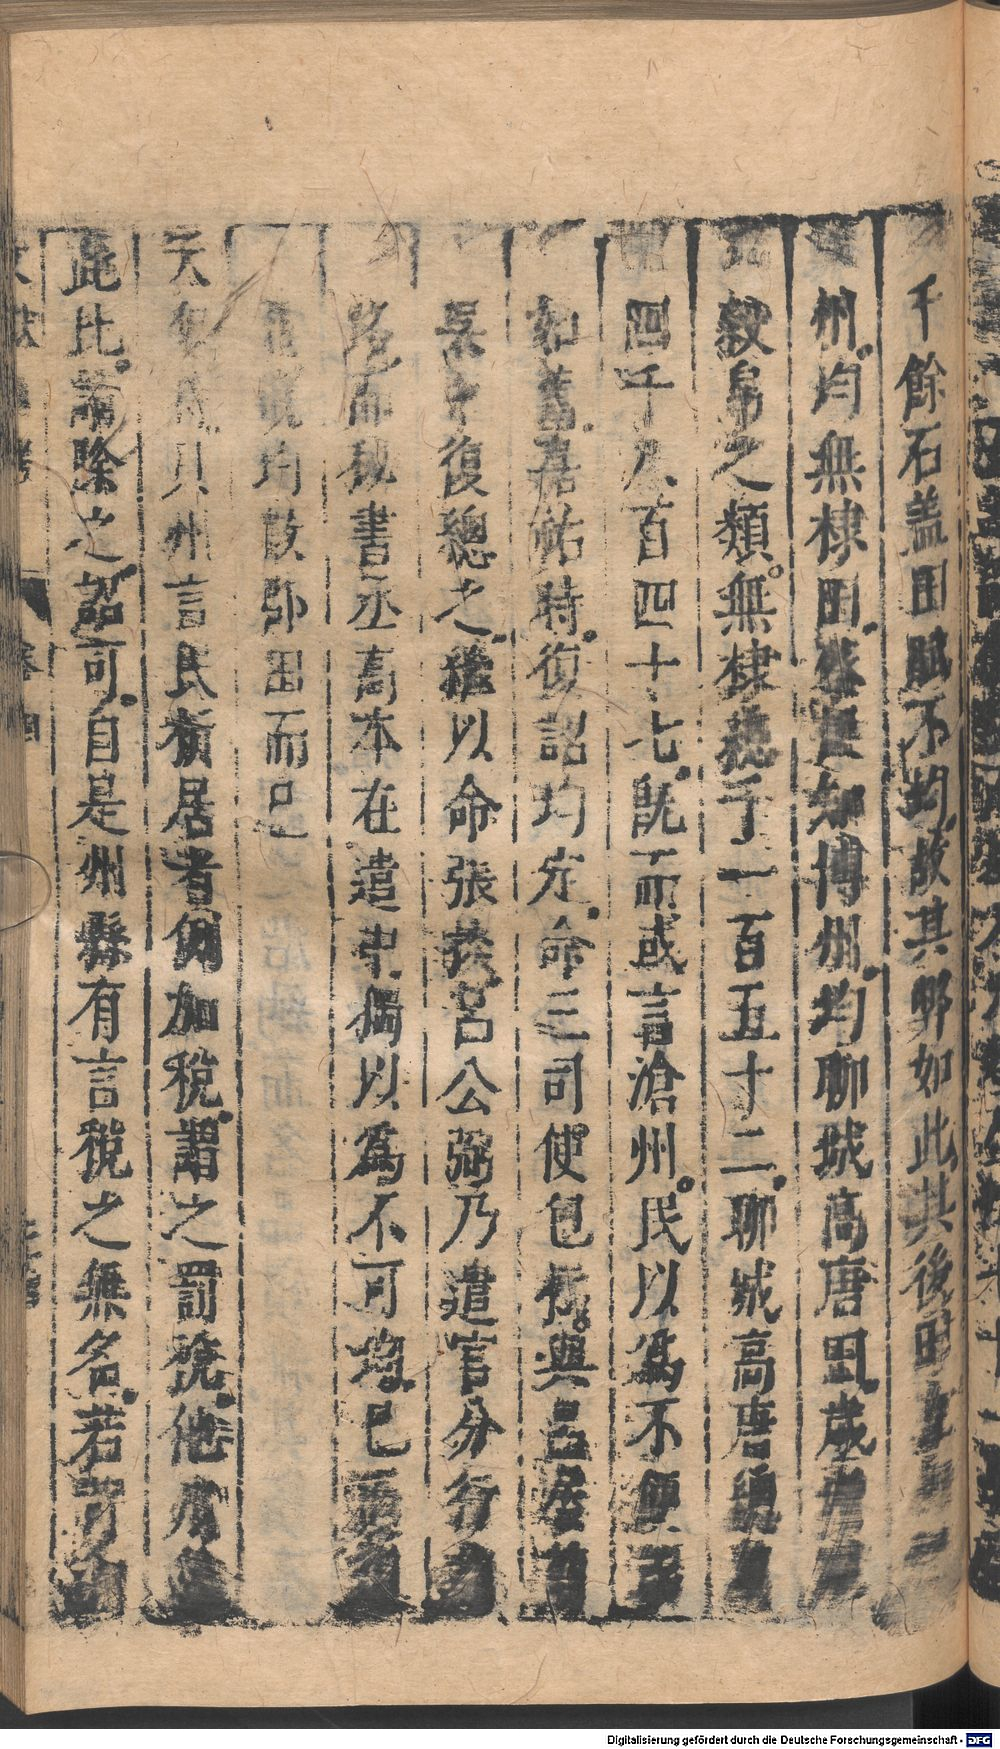 千餘石盖田賦不均故其弊如此其後田
州均無棣田蔡 知博州均聊城高唐田歲
穀帛之類無棣總于一百五十二聊城高唐
四千八百四十七旣而或言滄州民以爲不便
如舊嘉祐時復詔均定命三司使包拯與呂居
吳中復總之繼以命張掞呂公弼乃遣官分行
路而秘書丞高本在遣中獨以爲不可均已
均數郡田而已
天 貝州言民析居者例加稅謂之罰稅他
此比請除之詔可自是州縣有言稅之無名若
Digitalisierung gefördert durch die Deutsche Forschungsgemeinschaft - DFG